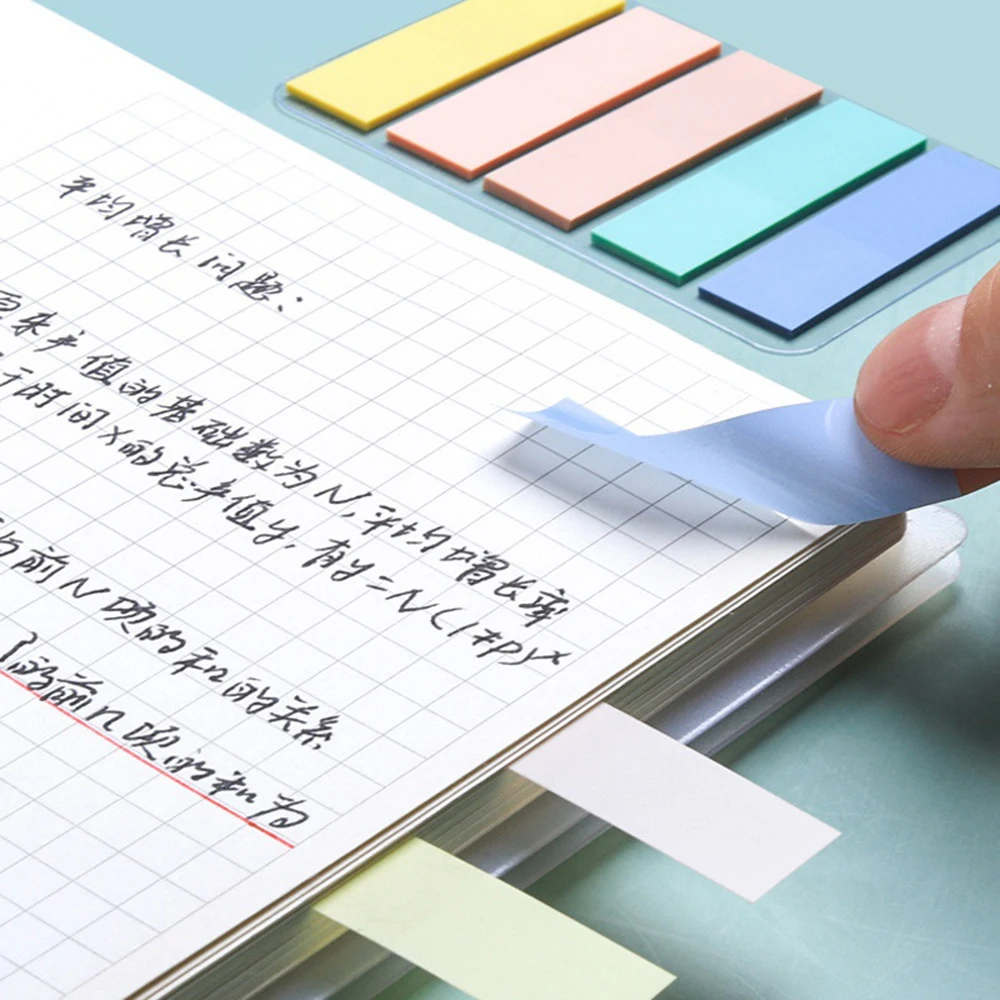 平均增长问题:
原来产值的基础数为N,平均增长率
于时间x的总产值y,有y=N(1+p)x
与前N项的和的关系
的前n项的和为